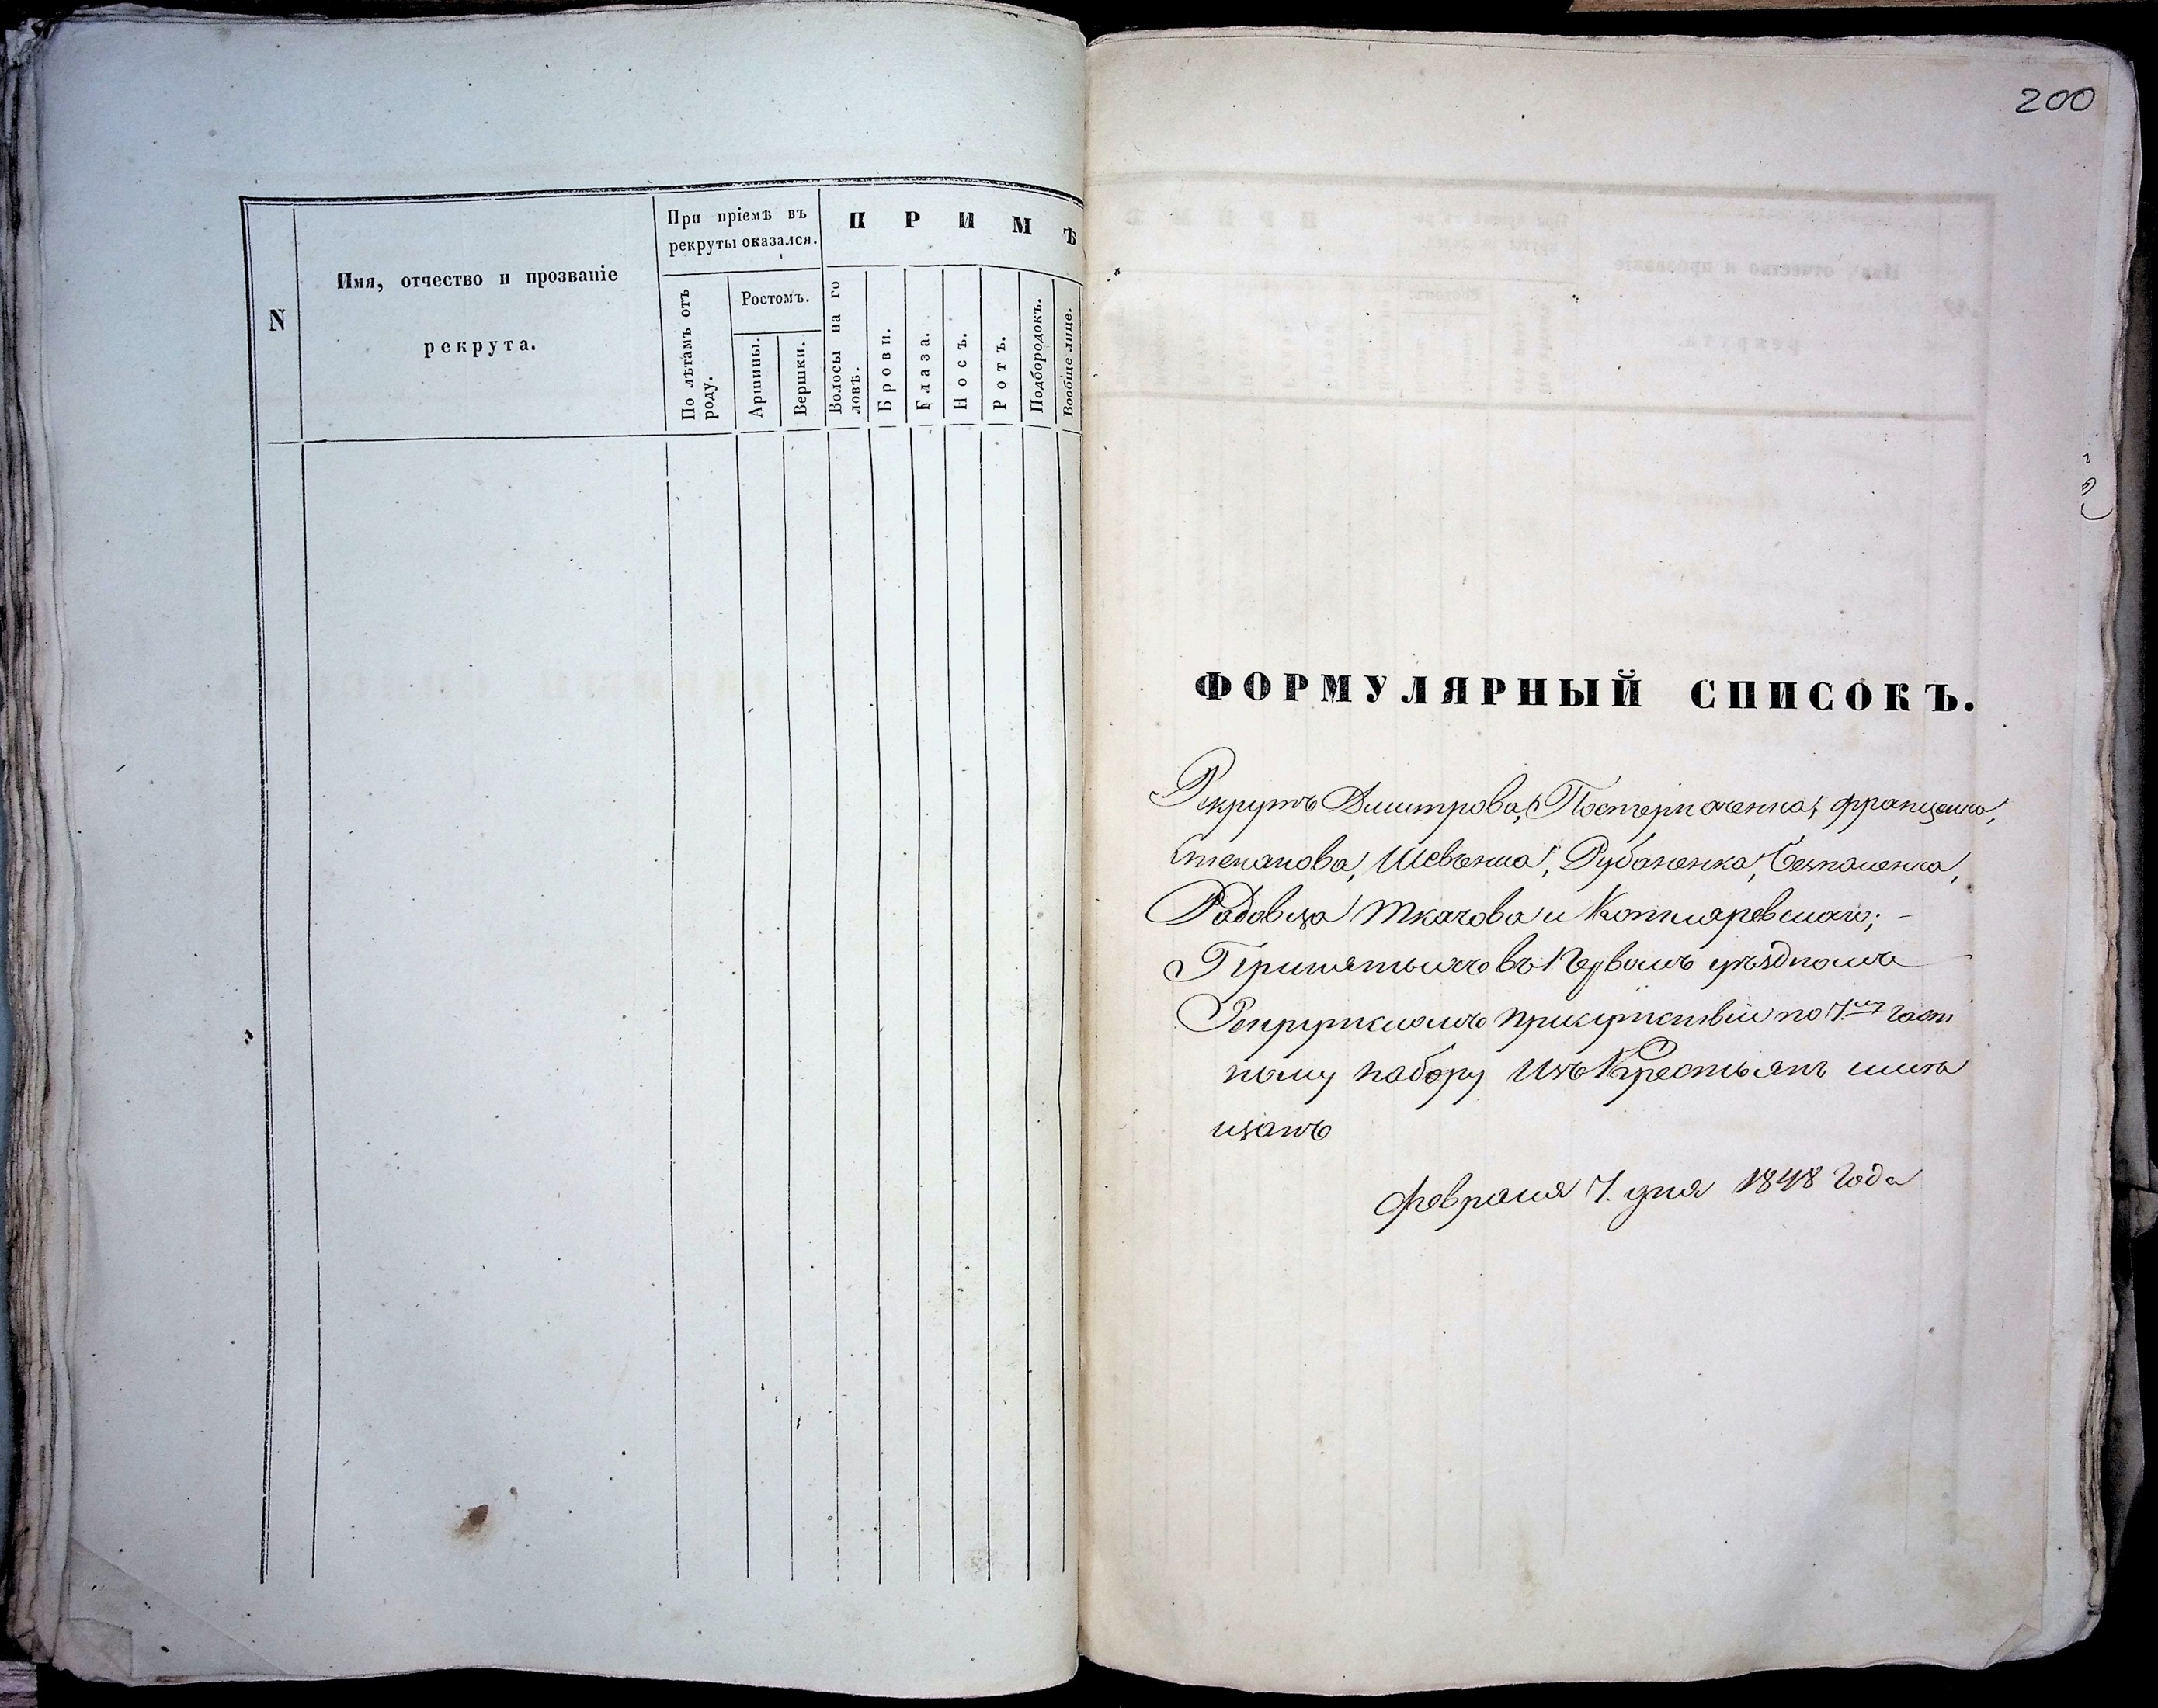 N
Имя, отчество и прозваніе
рекрута.
При пріемѣ въ
рекруты оказался.
По лѣтамъ отъ
роду.
Ростомъ.
Аршины.
Вершки.
П Р И М Ѣ
Волосы на го
ловѣ.
Брови.
Глаза.
Носъ.
Ротъ.
Подбородокъ.
Вообще лице.
200
ФОРМУЛЯРНЫЙ СПИСОКЪ.
Рекрутъ Дмитрова,
Степанова, Шевченка, Рубаненка,
Ткачова и Котляревскаго; -
Принятыхъ въ Первомъ уѣздномъ
Рекрутскомъ присутствіи по 7му част
ному набору Изъ Крестьянъ и мѣ
щанъ
Февраля 7. дня 1848 года